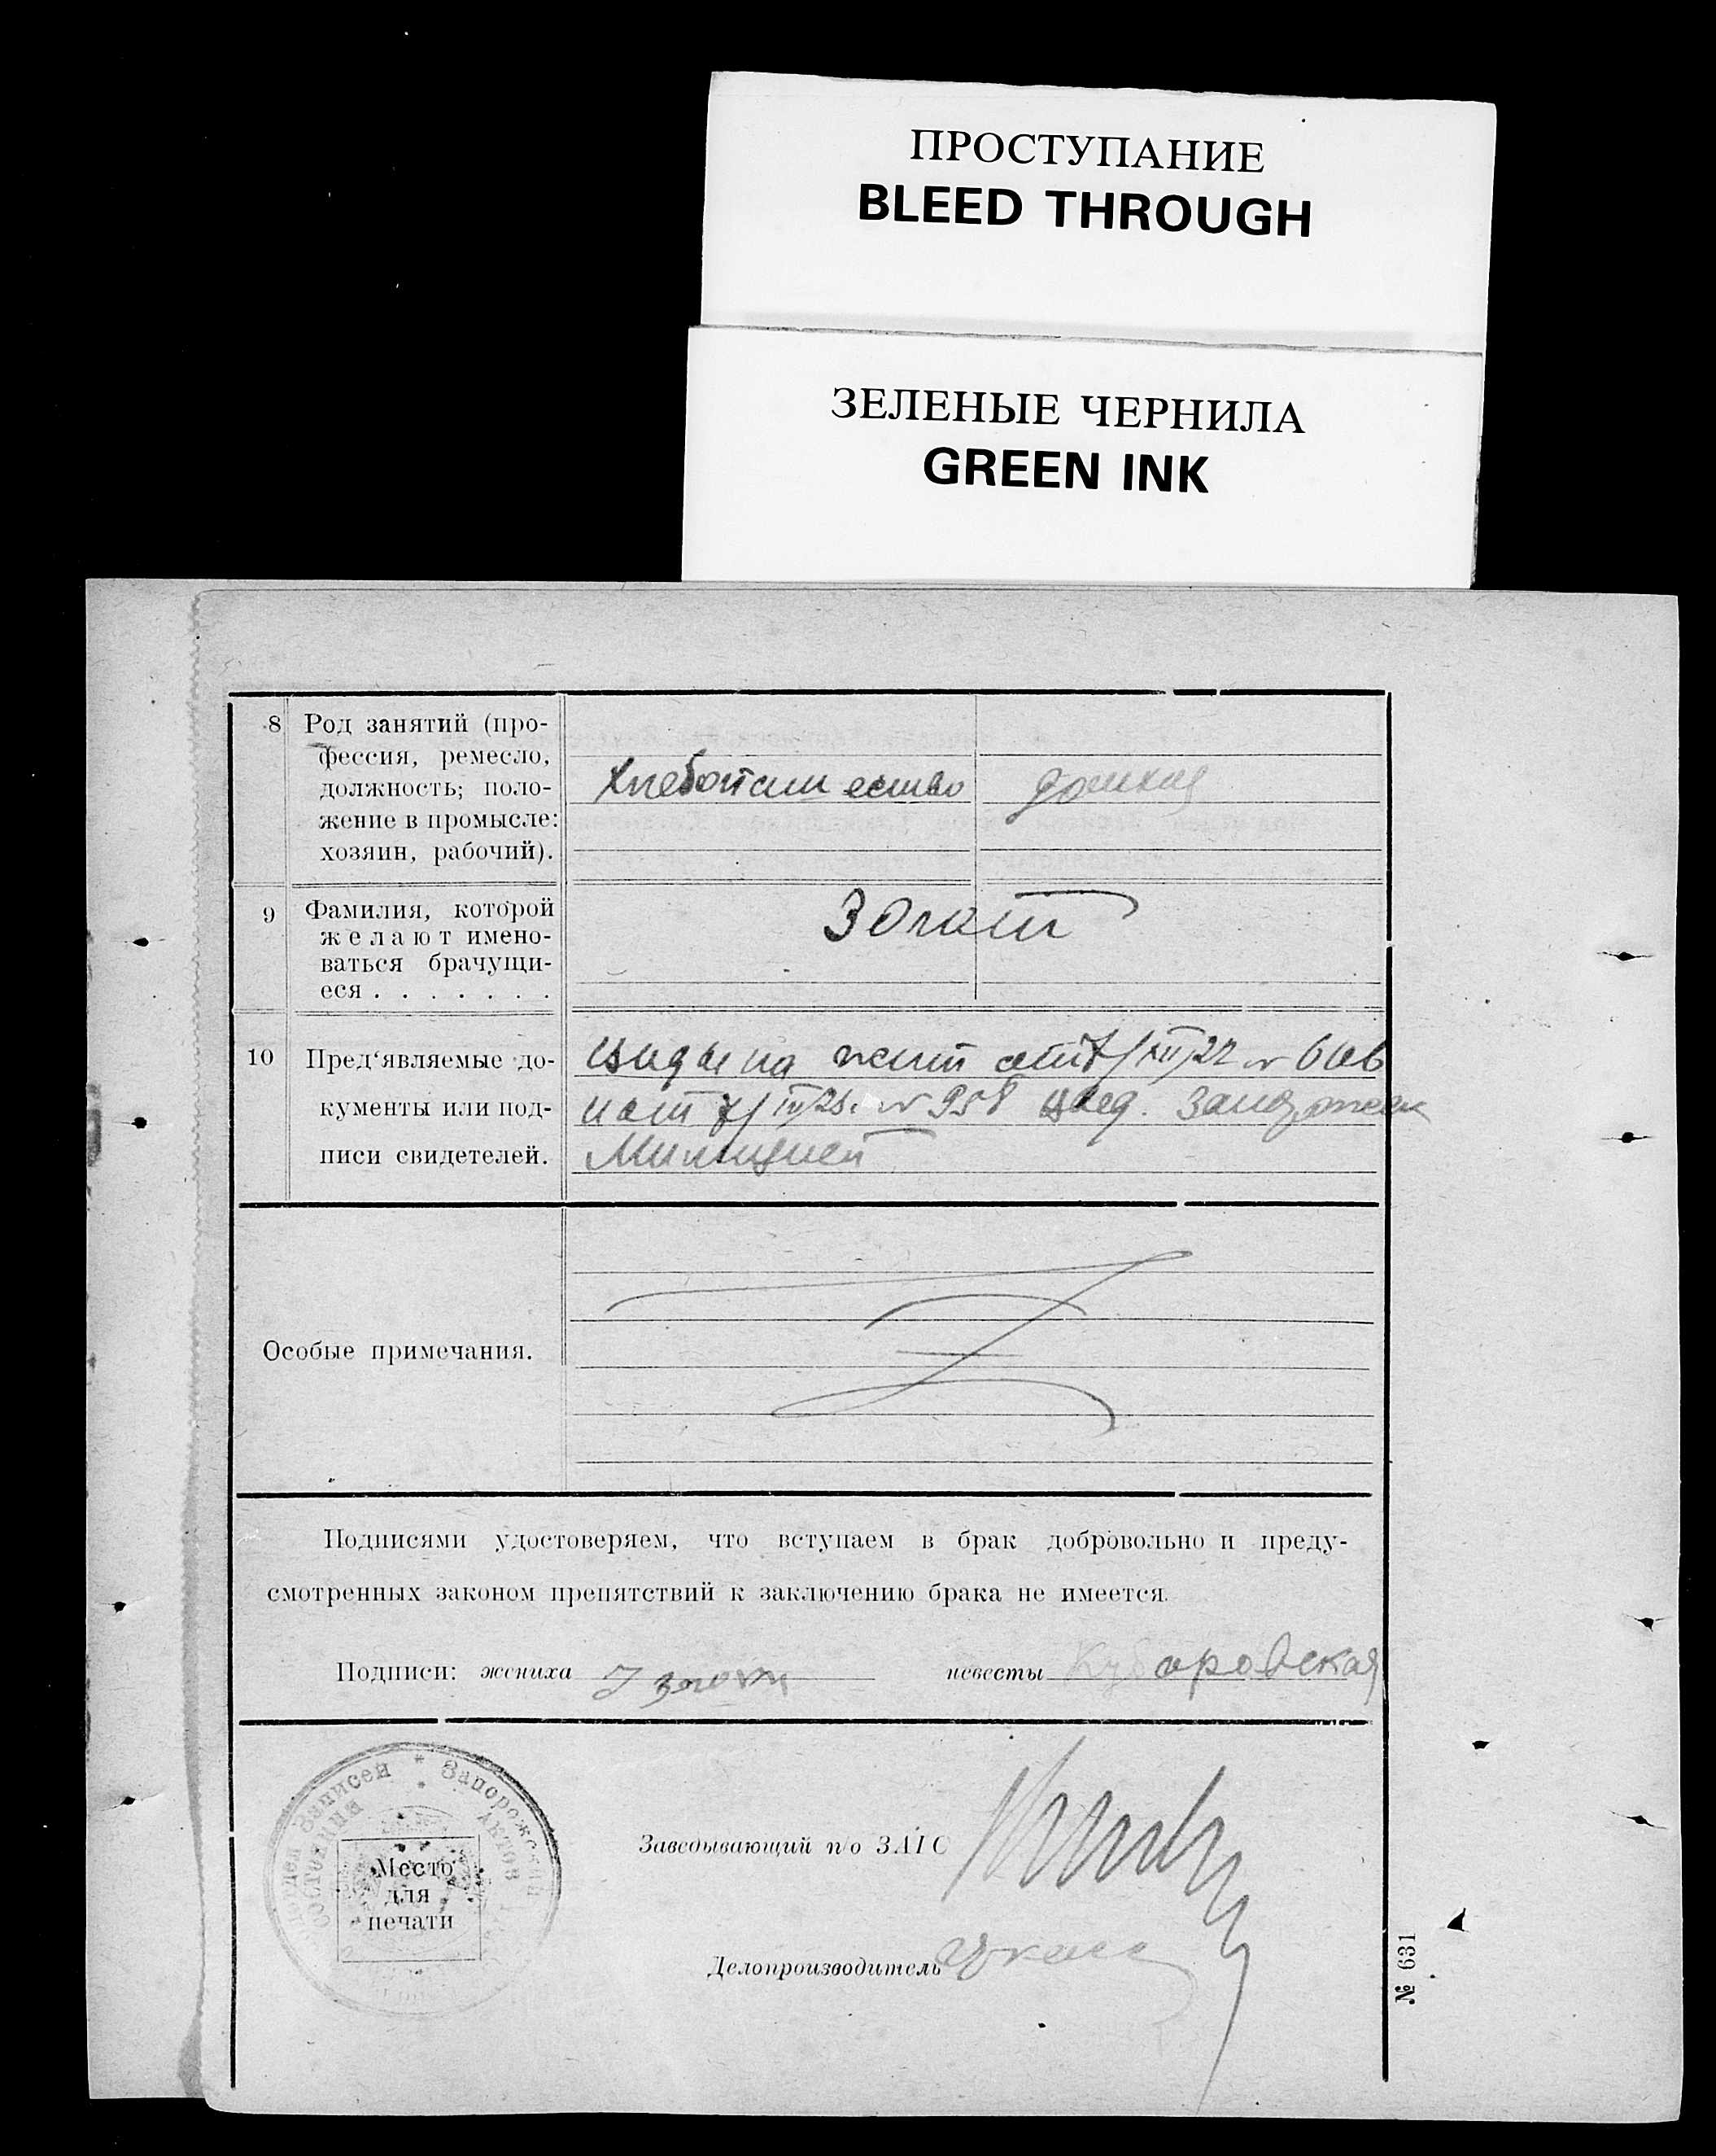 ПРОСТУПАНИЕ
BLEED THROUGH
ЗЕЛЕНЫЕ ЧЕРНИЛА
GREEN INK
8 Род занятий (про-
фессия, ремесло,
должность; поло-
жение в промысле:
хозяин, рабочий).
Хлебопашество
9 Фамилия, которой
желают имено-
ваться брачущи-
еся . . . . . . .
Золот
10 Пред‘являемые до-
кументы или под-
писи свидетелей.
на жит
№ 958
Милицией
Особые примечания.
Подписями удостоверяем, что вступаем в брак добровольно и преду-
смотренных законом препятствий к заключению брака не имеется.
Подписи: жениха невесты
* Запорожский
Записей
Актов
Состояния
Место
для
печати
Заведывающий п/о ЗАГС
Делопроизводитель
№ 631